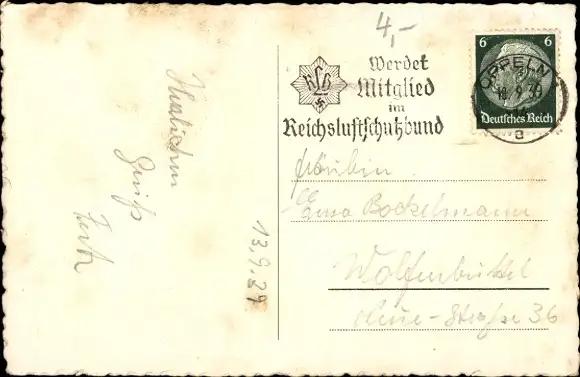 4,-
Werdet
Mitglied
im
Reichsluftschutzbund
RLB
6 6
Deutsches Reich
OPPELN
a
Gruß
13.9.39
Fräulein
Erna Bockelmann
Wolfenbüttel
Neue-Straße 36